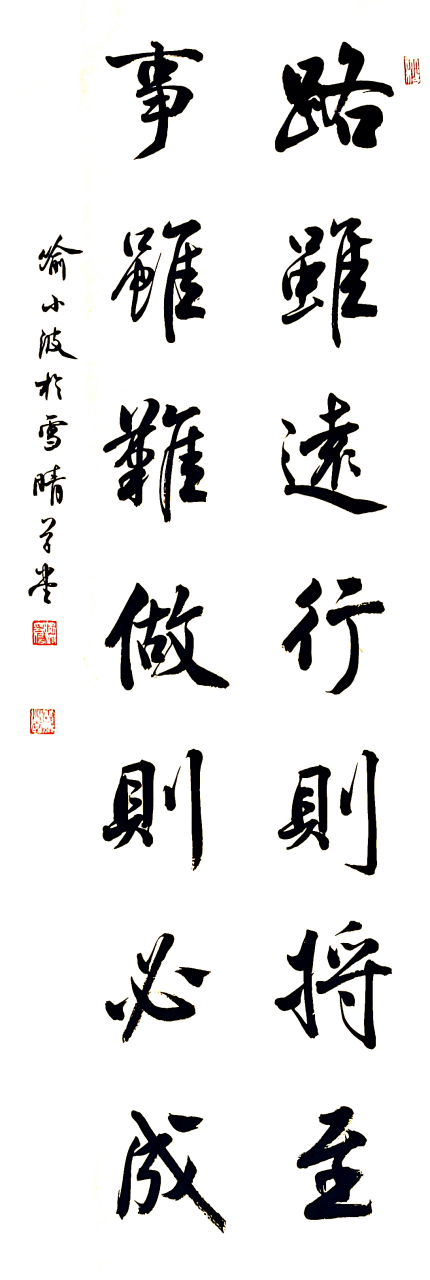 路雖遠行則將至
事雖難做則必成
喻小波於雪晴草堂